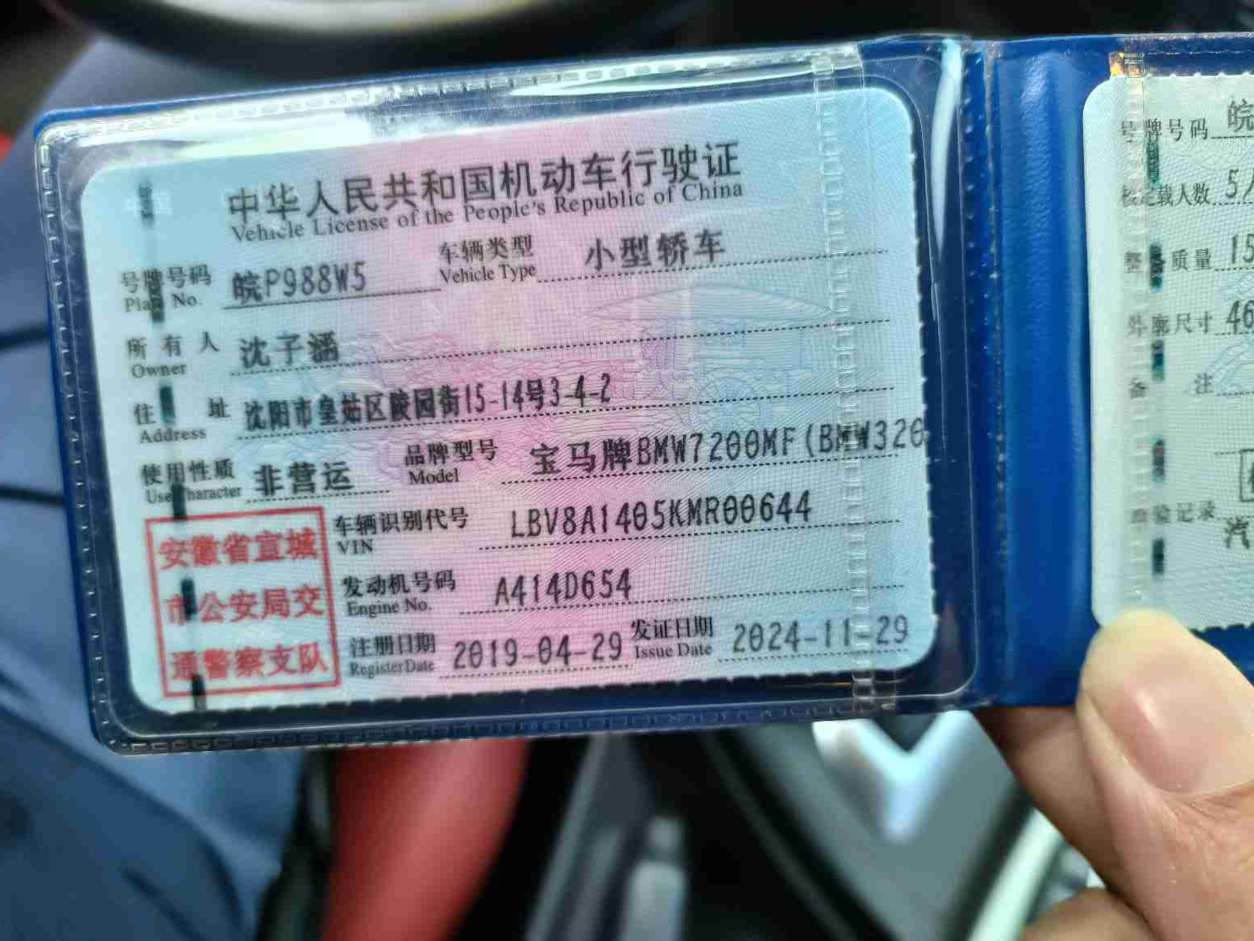 中华人民共和国机动车行驶证
Vehicle License of the People's Republic of China
号牌号码 皖P988W5 车辆类型 小型轿车
Plate No. Vehicle Type
所有人 沈子涵
Owner
住址 沈阳市皇姑区陵园街15-14号3-4-2
Address
使用性质 非营运 品牌型号 宝马牌BMW7200MF(BMW320
Use Character Model
车辆识别代号 LBV8A1405KMR00644
VIN
发动机号码 A414D654
Engine No.
注册日期 2019-04-29 发证日期 2024-11-29
Register Date Issue Date
安徽省宣城
市公安局交
通警察支队
号牌号码 皖
核定载人数 5
整备质量 15
外廓尺寸 46
备注
检验记录
汽